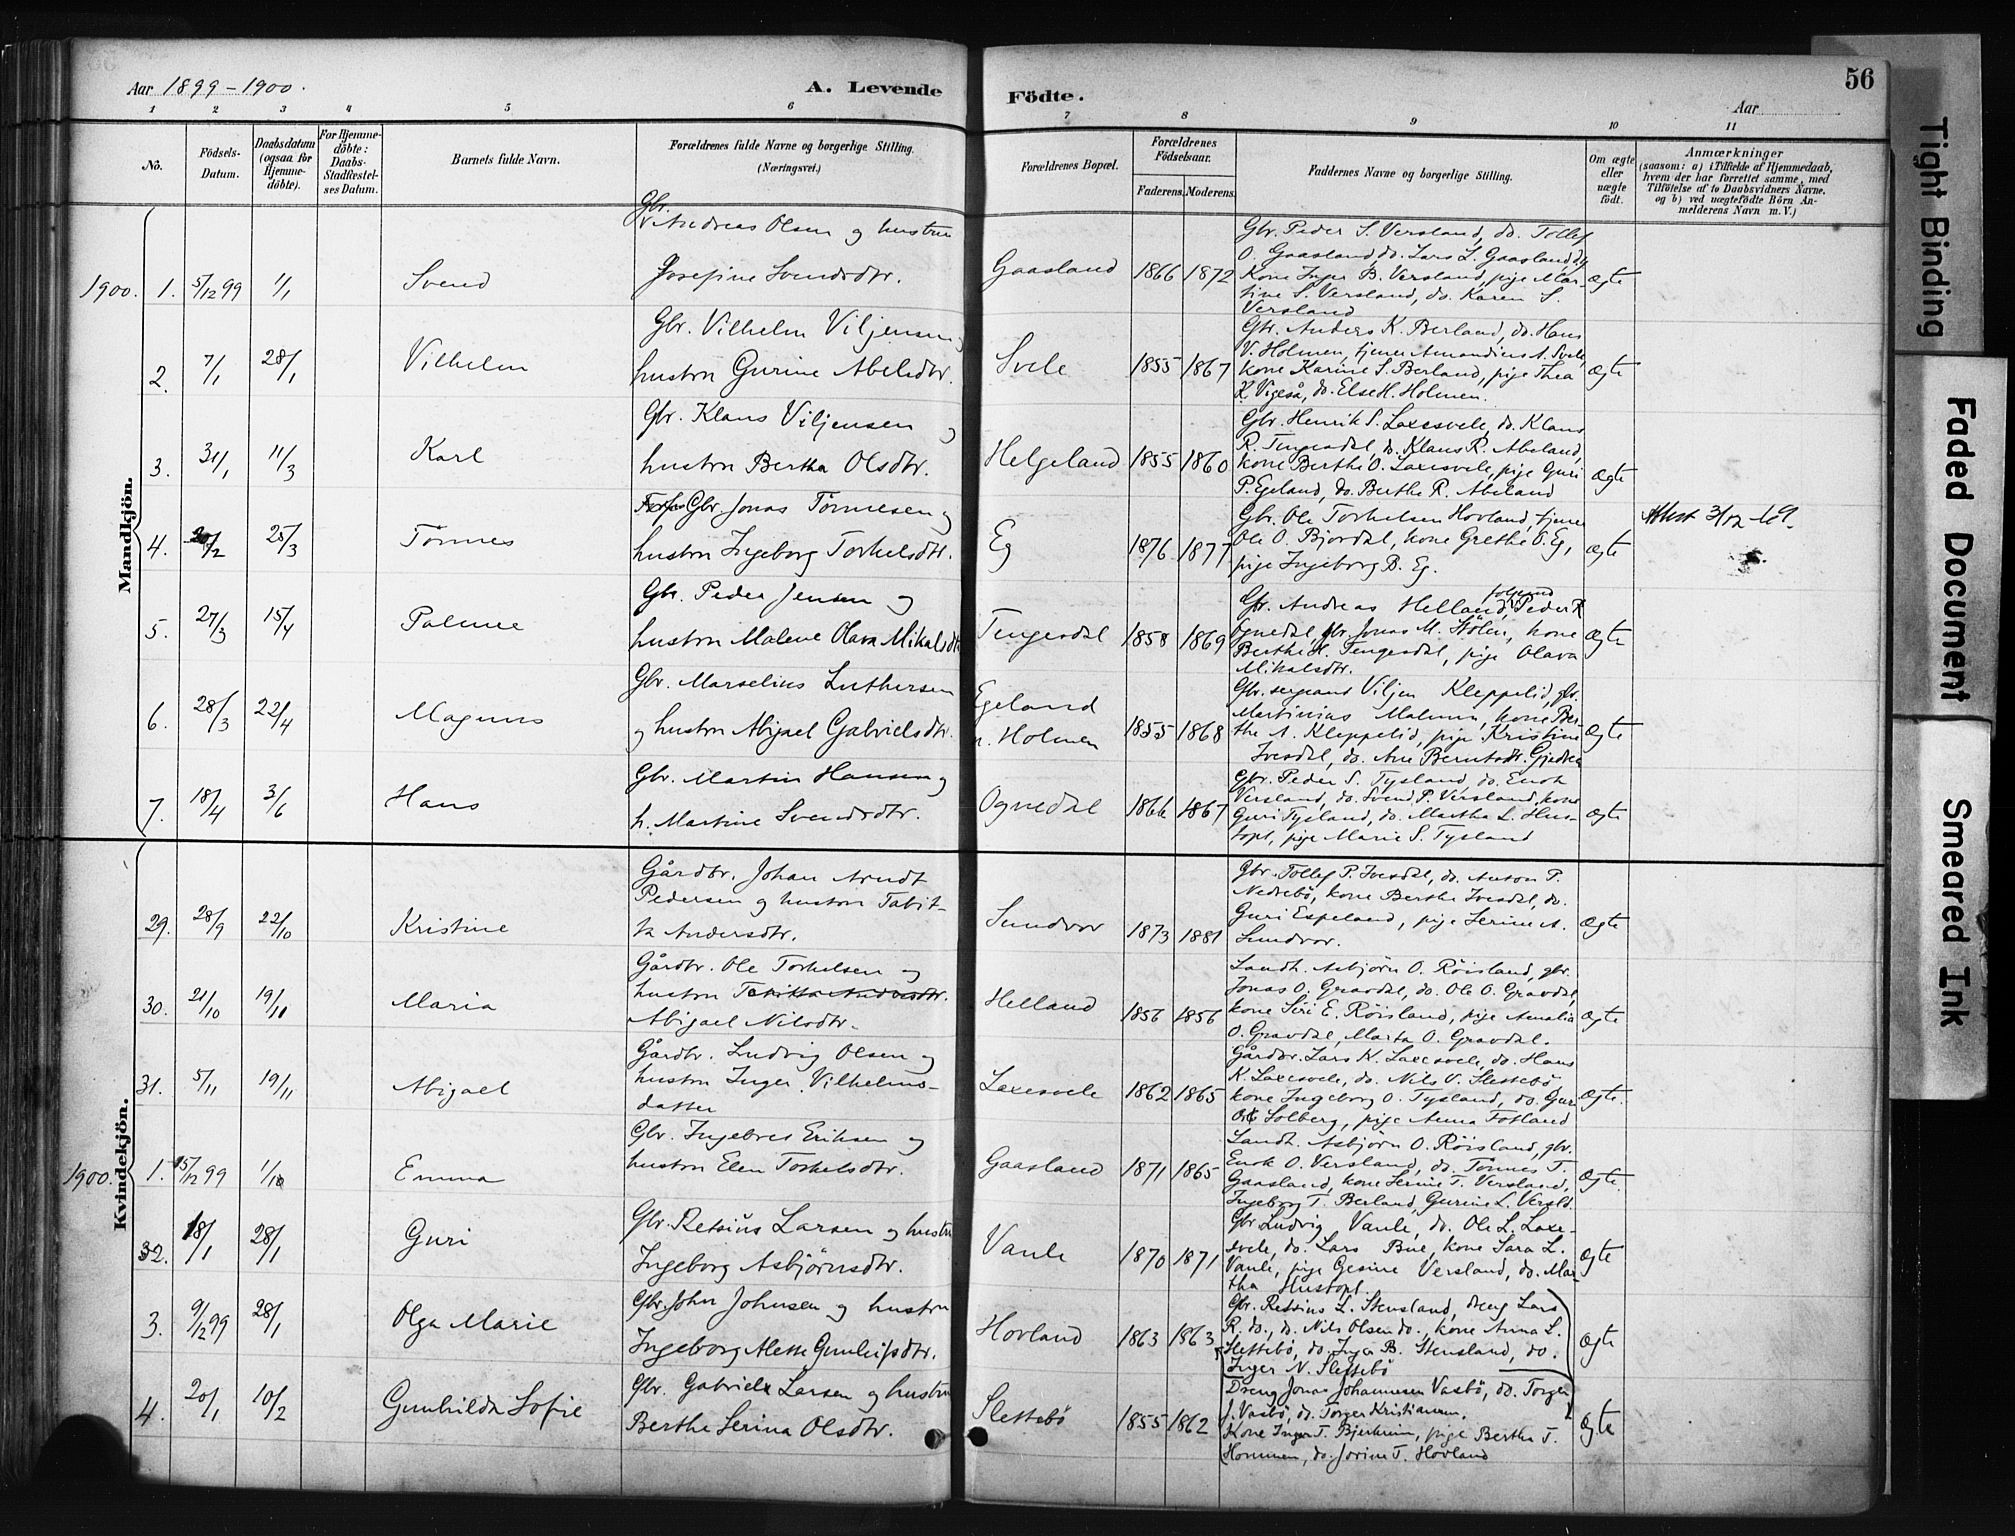 56
Aar 1899-1900.
A. Levende
Födte.
Aar
1 2 3 4 5 6 7 8 9 10 11
No.
Födsels-
Datum.
Daabsdatum
(ogsaa for
Hjemme-
döbte).
For Hjemme-
döbte:
Daabs-
Stadfæstel-
ses Datum.
Barnets fulde Navn.
Forældrenes fulde Navne og borgerlige Stilling.
(Næringsvei.)
Forældrenes Bopæl.
Forældrenes
Födselsaar.
Faderens. Moderens.
Faddernes Navne og borgerlige Stilling.
Om ægte
eller
uægte
født.
Anmærkninger
(saasom: a) i Tilfælde af Hjemmedaab,
hvem der har forrettet samme, med
Tilföielse af to Daabsvidners Navne,
og b) ved uægtefödte Börn An-
melderens Navn m. V.)
Mandkjön.
Gbr.
Andreas Olsen og hustru
Josefine Svendsdtr.
1900. 1. 5/12 99 1/1 Svend
Gaasland 1866 1872
Gbr. Peder S. Versland, do. Tollef
O. Gaasland, do. Lars L. Gaasland,
Kone Inger B. Versland, pige Mar-
tine S. Versland, do. Karen S.
Versland
Ægte
2. 7/1 28/1 Vilhelm
Gbr. Vilhelm Viljensen
hustru Gurine Abelsdtr.
Svele 1855 1867
Gbr. Anders K. Berland, do. Hans
V. Holmen, tjener Amandius A. Svele,
kone Karine S. Berland, pige Thea
K. Vigeså, do. Else H. Holmen.
Ægte
3. 31/1 11/3 Karl
Gbr. Klaus Viljensen og
hustru Bertha Olsdtr.
Helgeland 1855 1860
Gbr. Henrik S. Laxesvele, do. Klaus
R. Tengesdal, do. Klaus R. Abeland,
kone Berthe O. Laxesvele, pige Guri
P. Egeland, do. Berthe R. Abeland
Ægte
4. 20/2 25/3 Tønnes
Gbr. Jonas Tønnesen og
hustru Ingeborg Torkelsdtr.
Eg 1876 1877
Gbr. Ole Torkelsen Hovland, tjener
Ole O. Bjordal, kone Grethe T. Eg,
pige Ingeborg B. Eg.
Ægte
Attest 3/12
5. 27/3 15/4 Palmee
Gbr. Peder Jensen og
hustru Malene Olava Mikalsdtr
Tengesdal 1858 1869
Gbr. Andreas Helland, Peder R
Ognedal, gbr Jonas M. Stölen, kone
Berthe H. Tengesdal, pige Olava
Mikalsdtr.
Ægte
6. 28/3 22/4 Magnus
Gbr. Marselius Luthersen
og hustru Abigael Gabrielsdtr.
Egeland
n. Holmen 1855 1868
Gbr. sergeant Viljen Kleppelid, gbr.
Martinius Malmen, kone Ber-
the A. Kleppelid, pige Kristine
Ivesdal, do. Ane Berntsdtr. Gjedrea
Ægte
7. 18/4 3/6 Hans
Gbr. Martin Hansen og
h. Martine Svendsdtr.
Ognedal 1866 1867
Gbr. Peder S. Tysland, do. Enok
Versland, do. Svend P. Versland, kone
Guri Tysland, do. Martha L. Hus-
topt, pige Marie S. Tysland
Ægte
Kvindekjön.
29. 28/9 22/10 Kristine
Gårdbr. Johan Arndt
Pedersen og hustru Tabit-
ta Andersdtr.
Sundvor 1873 1881
Gbr. Tollef P. Ivesdal, do. Anton P.
Nedrebö, kone Berthe Ivesdal, do.
Guri Espeland, pige Serine A.
Sundvor.
Ægte
30. 21/10 19/11 Maria
Gårdbr. Ole Torkelsen og
hustru Tabitta Andersdtr.
Abigael Nilsdtr.
Helland 1856 1856
Landh. Asbjørn O. Røisland, gbr.
Jonas O. Gravdal, do. Ole O. Gravdal,
kone Siri E. Røisland, pige Amalia
O. Gravdal, Marta O. Gravdal.
Ægte
31. 5/11 19/11 Abigael
Gårdbr. Ludvig Olsen og
hustru Inger Vilhelms-
datter
Laxesvele 1862 1865
Gårdbr. Lars K. Laxesvele, do. Hans
K. Laxesvele, do. Nils V. Slettebö
kone Ingeborg O. Tysland, do. Guri
Solberg, pige Anna Fotland
Ægte.
1900. 1. 15/12 99 1/1 Emma
Gbr. Ingebret Eriksen og
hustru Elen Torkelsdtr.
Gaasland 1871 1865
Landh. Asbjørn O. Røisland, gbr.
Enok O. Versland, do. Tønnes T.
Gaasland, kone Serine T. Versland,
Ingeborg T. Berland, Gurine L. Versld.
Ægte.
2. 18/1 28/1 Guri
Gbr. Retsius Larsen og hustru
Ingeborg Asbjørnsdtr.
Vaule 1870 1871
Gbr. Ludvig Vaule, do. Ole L. Laxe-
svele, do. Lars Bue, kone Sara L.
Vaule, pige Gesine Versland, do. Mar-
tha Hustopt.
Ægte
3. 9/12 99 28/1 Olga Marie
Gbr. John Johnsen og hustru
Ingeborg Alette Gunleifsdtr.
Hovland 1863 1863
Gbr. Retsius L. Stensland, dreng Lars
R. do., do. Nils Olsen do., kone Anna L.
Slettebö, do. Inger B. Stensland, do.
Inger N. Slettebö
Ægte
4. 20/1 10/2 Gunhilda Sofie
Gbr. Gabriel Larsen og hustru
Berthe Serina Olsdtr.
Slettebö 1855 1862
Dreng Jonas Johannesen Vasbö, do. Torger
J. Vasbö, do. Torger Kristiansen.
Kone Inger T. Bjerkreim, pige Bertha T.
Hommen, do. Jorine T. Hovland
Ægte
Tight Binding
Faded Document
Smeared Ink